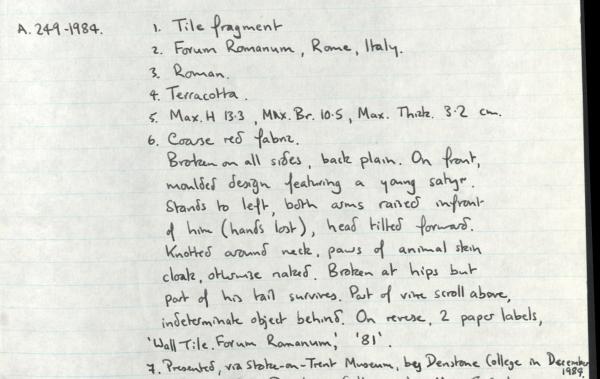 A. 249-1984. 1. Tile fragment
2. Forum Romanum, Rome, Italy.
3. Roman.
4. Terracotta.
5. Max. H 13.3, Max. Br. 10.5, Max. Thick. 3.2 cm.
6. Coarse red fabric.
Broken on all sides, back plain. On front,
moulded design featuring a young satyr.
Stands to left, both arms raised infront
of him (hands lost), head tilted forward.
Knotted around neck, paws of animal skin
cloak, otherwise naked. Broken at hips but
part of his tail survives. Part of vine scroll above,
indeterminate object behind. On reverse, 2 paper labels,
'Wall Tile. Forum Romanum,' '81'.
7. Presented, via Stoke-on-Trent Museum, by Denstone College in December
1984.